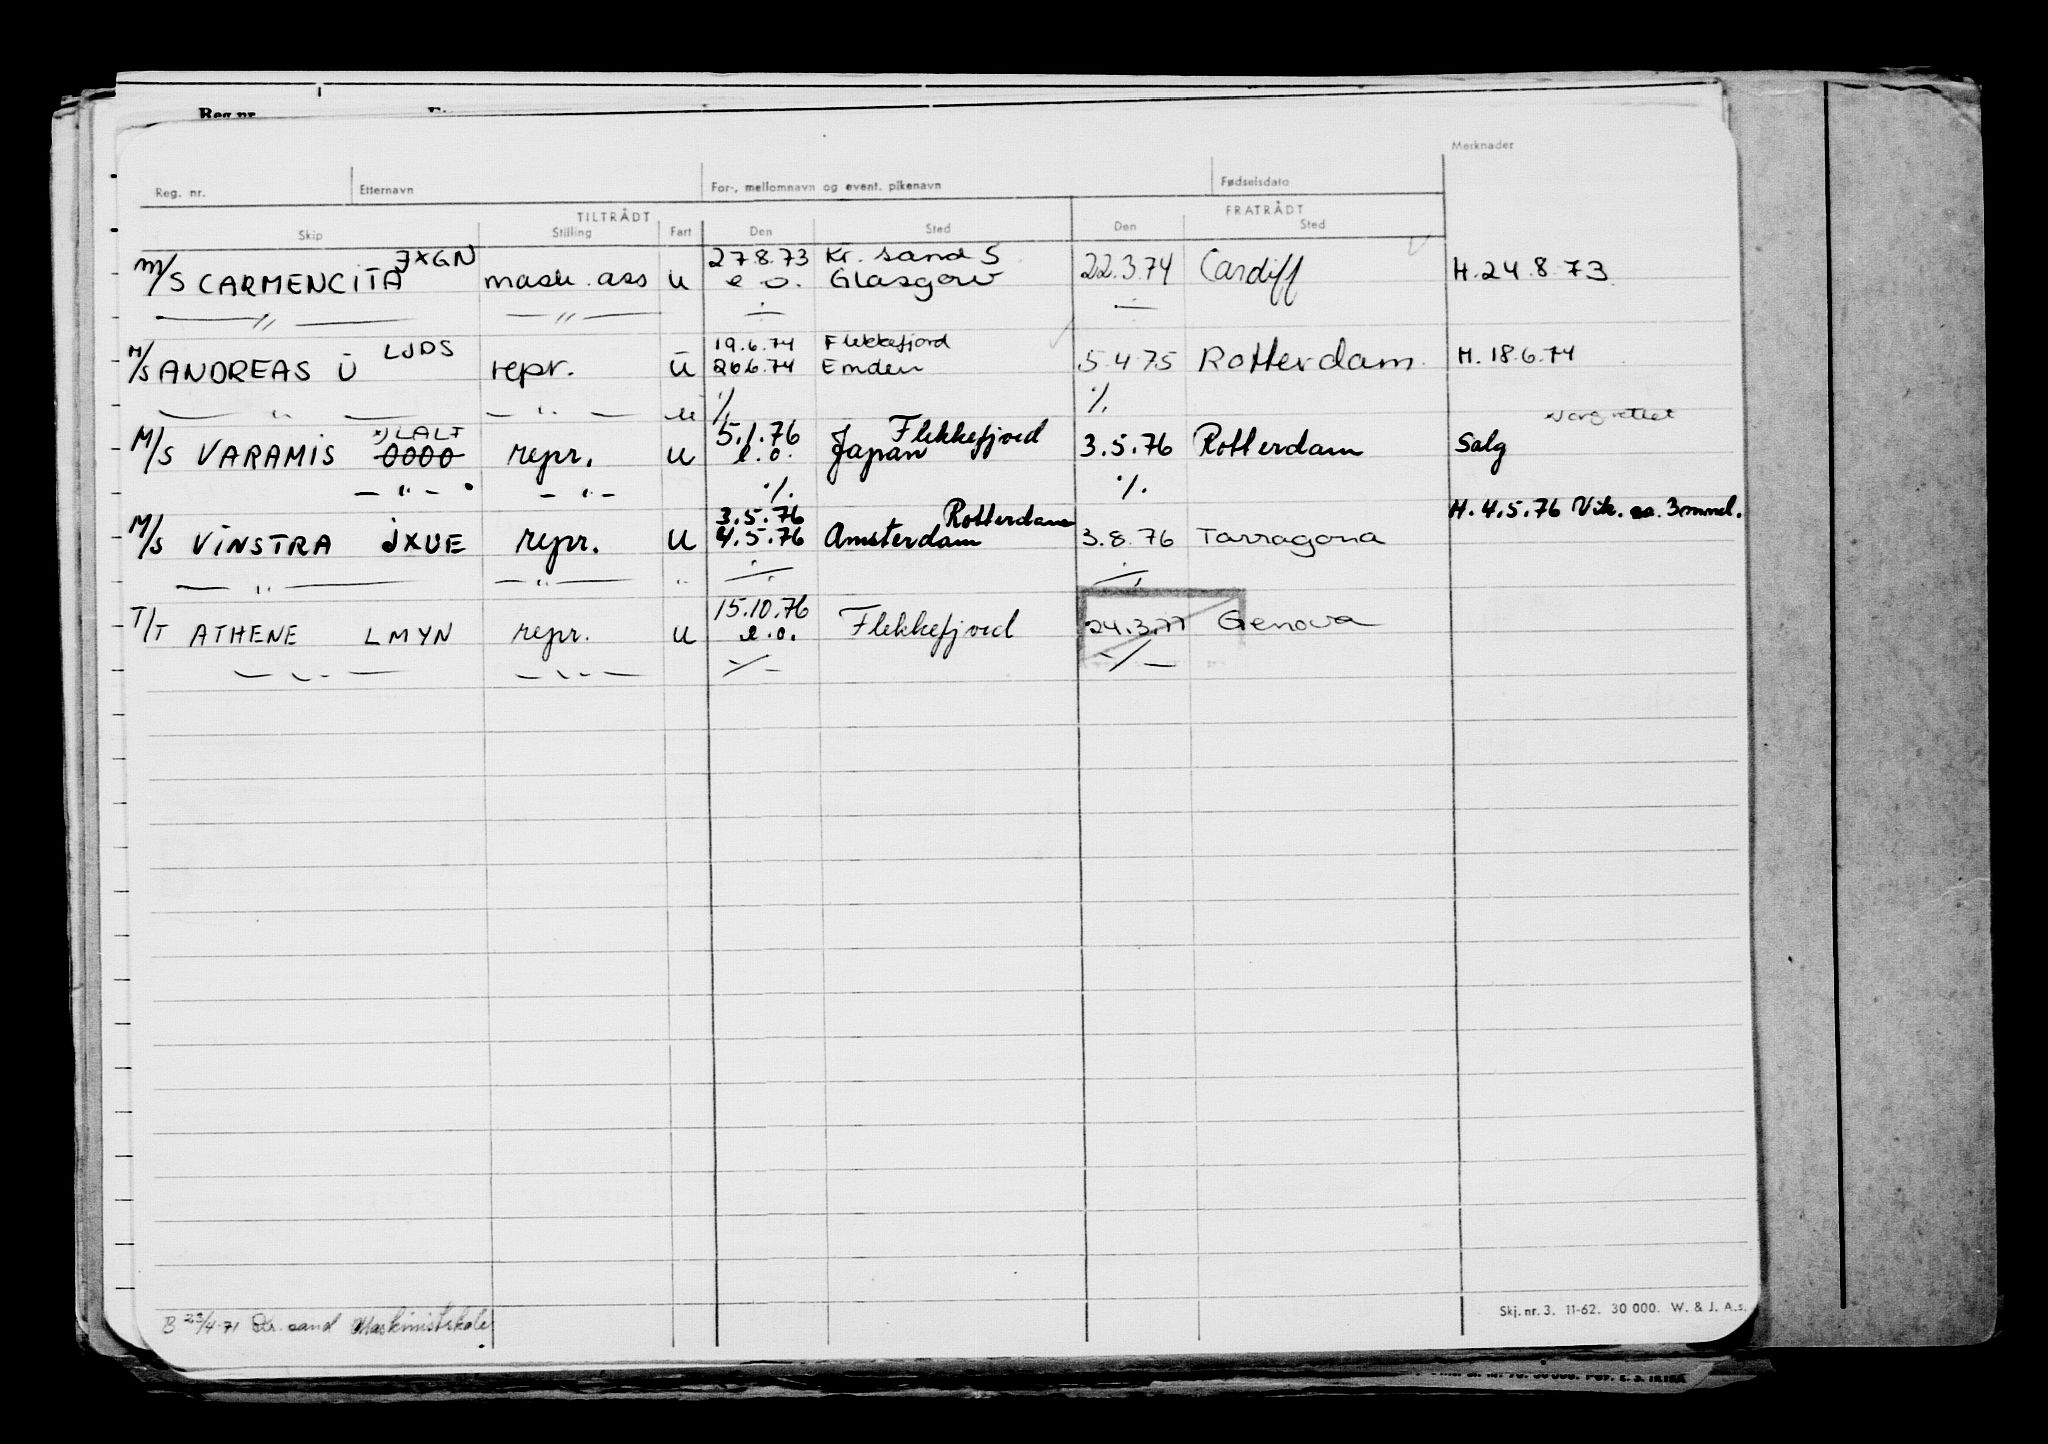 Reg nr
Merknader
Reg. nr. Etternavn For-, mellomnavn og event. pikenavn Fødselsdato
TILTRÅDT FRATRÅDT
Skip Stilling Fart Den Sted Den Sted
JXGN 27.8.73 Kr. sand S
M/S CARMENCITA mask. ass u e.o. Glasgow 22.3.74 Cardiff H.24.8.73
— " — — " — ÷ ÷
LJDS 19.6.74 Flekkefjord
M/S ANDREAS U repr. u 20.6.74 Emden 5.4.75 Rotterdam H. 18.6.74
— " — — " — u ./. ./.
x) LALT 5.1.76 Flekkefjord
M/S VARAMIS OOOO repr. u e.o. Japan 3.5.76 Rotterdam Salg
— " — — " — ./. ./.
3.5.76 Rotterdam H. 4.5.76 Vik. ca. 3 mnd.
M/S VINSTRA JXUE repr. u 4.5.76 Amsterdam 3.8.76 Tarragona
— " — — " — " ÷ ÷
15.10.76
T/T ATHENE LMYN repr. u e.o. Flekkefjord 24.3.77 Genova
— " — — " — -/- -/-
B 23/4-71 Kr. sand Maskinistskole
Skj. nr. 3. 11-62. 30 000. W. & J. A.s.